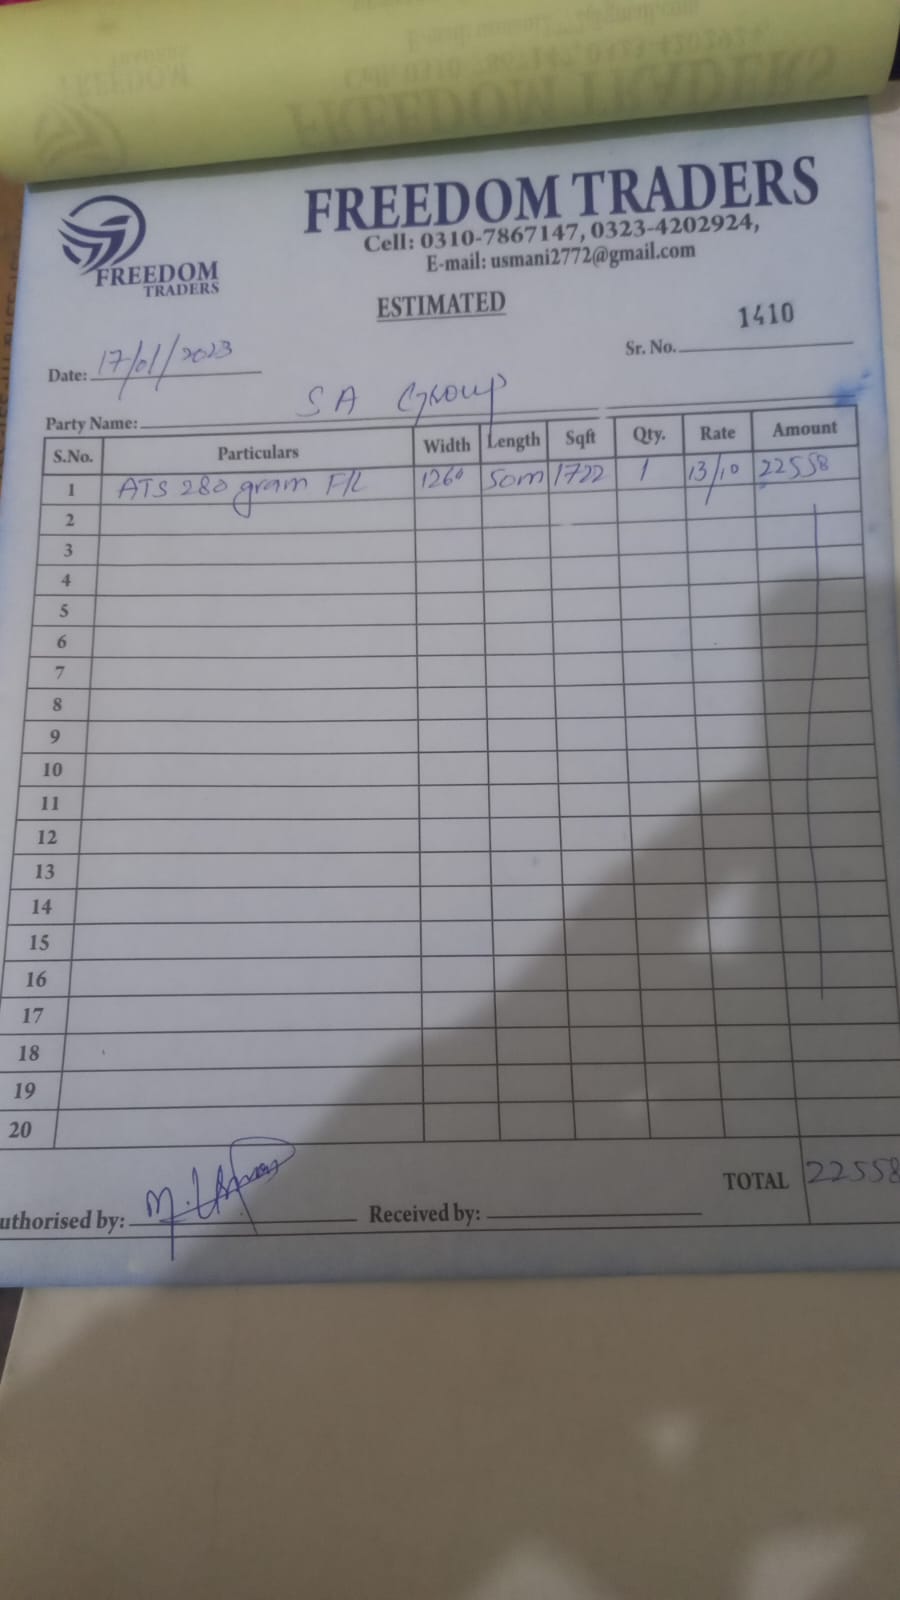 FREEDOM TRADERS
FREEDOM
TRADERS
Cell: 0310-7867147, 0323-4202924,
E-mail: usmani2772@gmail.com
ESTIMATED
Date: 17/01/2023
Sr. No. 1410
Party Name: SA Group
S.No. Particulars Width Length Sqft Qty. Rate Amount
1 ATS 280 gram F/L 1260 50m 1722 1 13/10 22558
2
3
4
5
6
7
8
9
10
11
12
13
14
15
16
17
18
19
20
TOTAL 22558
uthorised by: Received by: